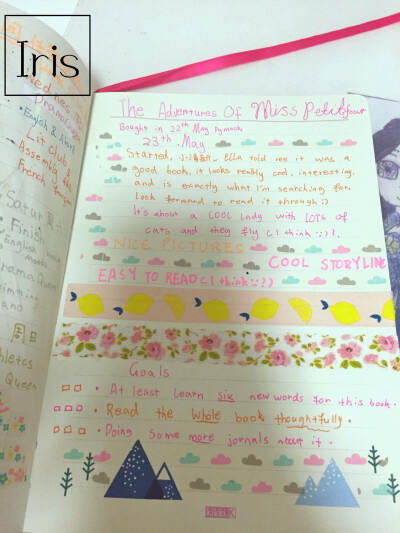 Iris
The Adventures Of Miss Petitfour
Bought in 22th May Dymock
23th May
Started, Ella told me it was a
good book, it looks really cool, interesting,
and is exactly what I'm searching for.
look forward to read it through :)
It's about a COOL lady with LOTS of
cats and they fly (I think :)).
NICE PICTURES
COOL STORYLINE
EASY TO READ (I think :))
Goals
• At least learn six new words for this book.
• Read the whole book thoughtfully.
• Doing some more jornals about it.
kikki.K
English &
Lit club &
Assembly
French
Finish
English
Drama Queen
周日
Queen